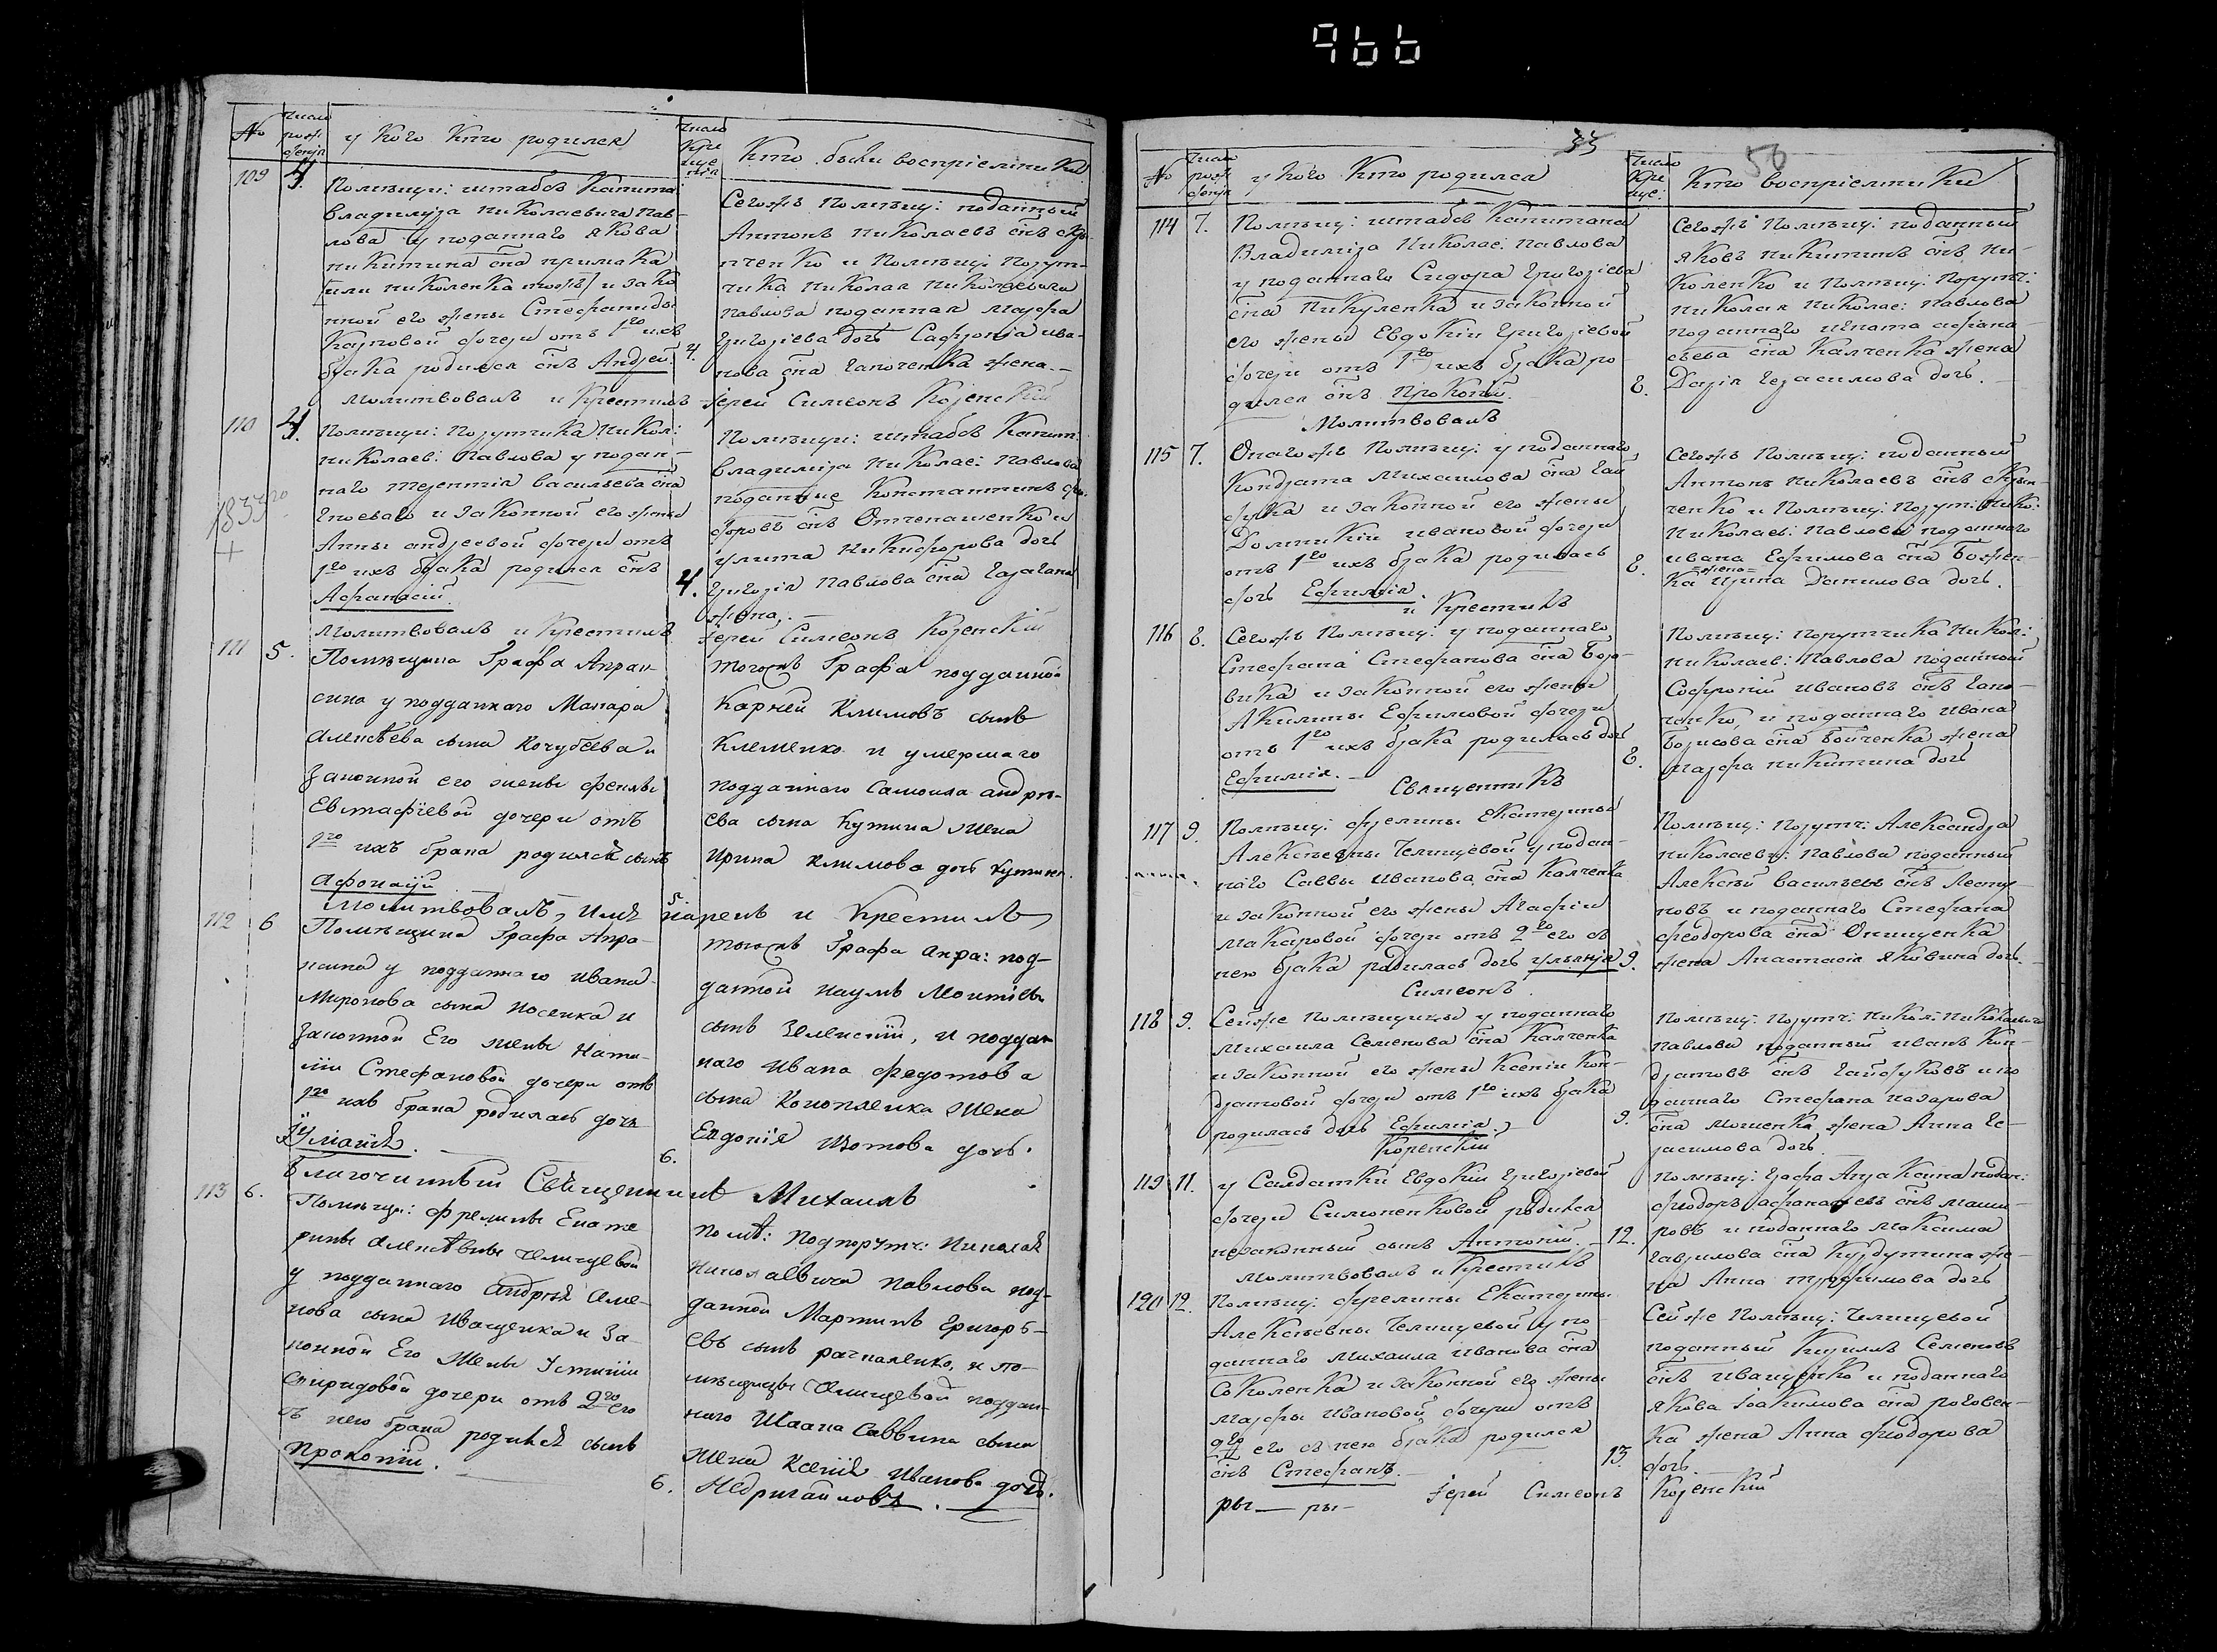 966
№
Число рож денiя
у Кого Кто родился
Число Кре ще нiя
Кто были воспрiемники
109 4.
Помѣщи: штабсъ Капита
Владимiра Николаевича Пав-
лова у поданнаго Якова
Никитина сна примака
[или Николенка тожъ] и зако
нной его жены Стефаниды
Карповой дочери отъ 1го ихъ
брака родился снъ Андрей.
Молитвовалъ и Крестилъ
4.
Сегожъ Помѣщ: поданный
Антонъ Николаевъ снъ
нченко и Помѣщ: Порут-
чика Николая Николаевича
Павлова поданная Марфа
Григорiева дочь Софронiя Ива-
нова сна Гапоченка жена.
Iерей Симеонъ Коренскiй
110 4.
1833го
+
Помѣщи: Порутчика Никол:
Николаев: Павлова у подан-
наго Терентiя Васильева сна
Гноеваго и законной его жены
Анны Андреевой дочери отъ
1го ихъ брака родился снъ
Афанасiй.
Молитвовалъ и Крестилъ
4.
Помѣщи: штабсъ Капит:
Владимiра Николае: Павлова
поданные Константинъ
доровъ снъ Отченашенко и
Улита Никифорова дочь
Григорiя Павлова сна
жена.
Iерей Симеонъ Коренскiй
111 5.
Помѣщика Графа Апрак-
сина у подданнаго Макара
Алексѣева сына Кочубеева и
Законной его жены Феклы
Евстафiевой дочери отъ
1го ихъ брака родился сынъ
Афонасiй
Молитвовалъ, имя
5. нарекъ и Крестилъ
тогожъ Графа подданной
Карней Климовъ сынъ
Клеменко и умершаго
подданнаго Самоила Андрѣ-
ева сына Кутина жена
Ирина Климова дочь
112 6
Помѣщика Графа Апра-
ксина у подданнаго Ивана
Миронова сына Носенка и
Законной Его жены Ната-
лiи Стефановой дочери отъ
1го ихъ брака родилась дочь
Iулiанiя.
6.
тогожъ Графа Апра: под-
данной Наумъ Леонтiевъ
сынъ Зеленскiй, и поддан
наго Ивана Федотова
сына Коноплянка жена
Евдокiя Изотова дочь.
Благочинный Священникъ Михаилъ
113 6.
Помѣщи: Фрелины Екате
рины Алексѣвны Челищевой
у подданнаго Андрѣя Семе-
нова сына Иващенка и За-
конной Его жены Устинiи
Спиридовой дочери отъ 2го его
съ нею брака родился сынъ
Прокопiй.
6.
помѣ: Подпорутч: Николая
Николаевича Павлова под-
данной Мартинъ Григорь-
евъ сынъ, и по-
мѣщицы Челищевой поддан-
наго Ивана Саввина сына
жена Ксенiя Иванова дочь.
Недригайловъ.
35
56
№
Число рож денiя
у Кого Кто родился
Число Кре ще:
Кто воспрiемники
114 7.
Помѣщ: штабсъ Капитана
Владимiра Николае: Павлова
у поданнаго Сидора Григорiева
сна Никуленка и законной
его жены Евдокiи Григорiевой
дочери отъ 1го ихъ брака ро-
дился снъ Прокопiй.
Молитвовалъ
8.
Сегожъ Помѣщ: поданный
Яковъ Никитинъ снъ Ни-
коленко и Помѣщ: Порутч:
Николая Николае: Павлова
поданнаго Игната Афана-
сьева сна Калченка жена
Дарiя Герасимова дочь.
115 7.
Онагожъ Помѣщ: у поданнаго
Кондрата Михаилова сна Гай
дука и законной его жены
Домникiи Ивановой дочери
отъ 1го ихъ брака родилась
дочь Ефимiя.
и Крестилъ
8.
Сегожъ Помѣщ: поданный
Антонъ Николаевъ снъ
ченко и Помѣщ: Порут: Нико:
Николаев: Павлова поданнаго
Ивана Ефимова сна Божен-
ка жена Ирина Данилова дочь.
116 8.
Сегожъ Помѣщ: у поданнаго
Стефана Стефанова сна Боро-
вика и законной его жены
Акилины Ефимовой дочери
отъ 1го ихъ брака родилась дочь
Ефимiя.
Священникъ
8.
Помѣщ: Порутчика Никол:
Николаев: Павлова поданный
Софронiй Ивановъ снъ Гапо-
ченко, и поданнаго Ивана
Борисова сна Бойченка жена
Марфа Никитина дочь
117 9.
Помѣщ: Фрелины Екатерины
Алексѣевны Челищевой у подан-
наго Саввы Иванова сна Калченка
и законной его жены Агафiи
Макаровой дочери отъ 2го его съ
нею брака родилась дочь Ульянiя
Симеонъ.
9.
Помѣщ: Порутч: Александра
Николаевъ: Павлова поданный
Алексѣй Васильевъ снъ Лесту-
новъ и поданнаго Стефана
Феодорова сна Онищенка
жена Анастасiя Яковина дочь.
118 9.
Сейже Помѣщицы у поданнаго
Михаила Семенова сна Калченка
и законной его жены Ксенiи Кон-
дратовой дочери отъ 1го ихъ брака
родилась дочь Ефимiя.
Коренскiй
9.
Помѣщ: Порутч: Никол: Николаевича
Павлова поданный Иванъ Кон-
дратовъ снъ Гайдуковъ и по
даннаго Стефана Назарова
сна Мошенка жена Анна Ге-
расимова дочь.
119 11.
у Салдатки Евдокiи Григорiевой
дочери Симоненковой родился
незаконный сынъ Антонiй.
Молитвовалъ и Крестилъ
12.
Помѣщ: Графа Апраксина подан:
Феодоръ Афанасьевъ снъ Маши-
ровъ и поданнаго Максима
Гаврилова сна Курдутина же-
на Анна Трофимова дочь
120 12.
Помѣщ: Фрелины Екатерины
Алексѣевны Челищевой у по-
даннаго Михаила Иванова сна
Соколенка и законной его жены
Марфы Ивановой дочери отъ
2го его съ нею брака родился
снъ Стефанъ.
13.
Сейже Помѣщ: Челищевой
поданный Кирилъ Семеновъ
снъ Иващенко и поданнаго
Якова Iоакимова сна Роговен-
ка жена Анна Феодорова
дочь.
ры — ры — Iерей Симеонъ Коренскiй